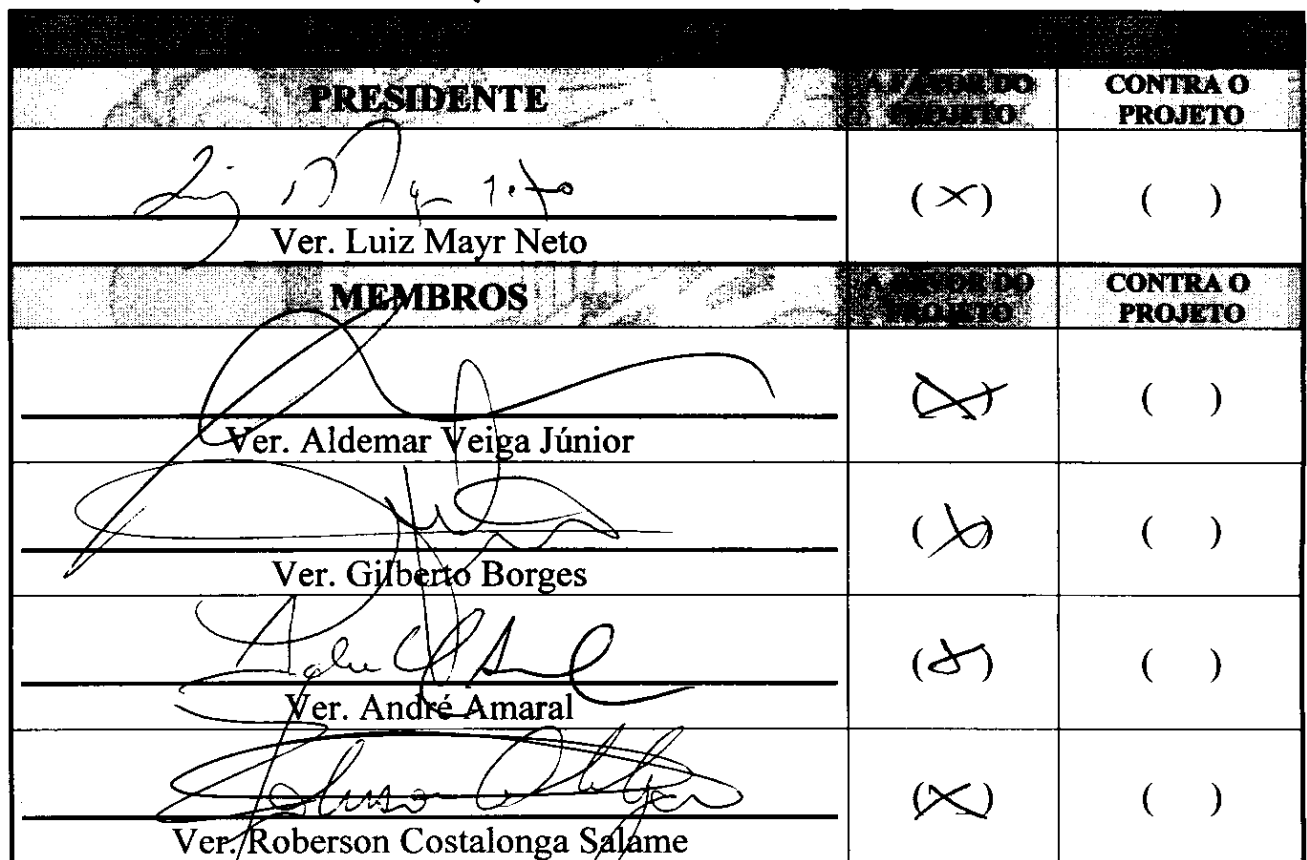 PRESIDENTE
A FAVOR DO PROJETO
CONTRA O PROJETO
(×) ( )
Ver. Luiz Mayr Neto
MEMBROS
A FAVOR DO PROJETO
CONTRA O PROJETO
(×) ( )
Ver. Aldemar Veiga Júnior
(×) ( )
Ver. Gilberto Borges
(×) ( )
Ver. André Amaral
(×) ( )
Ver. Roberson Costalonga Salame